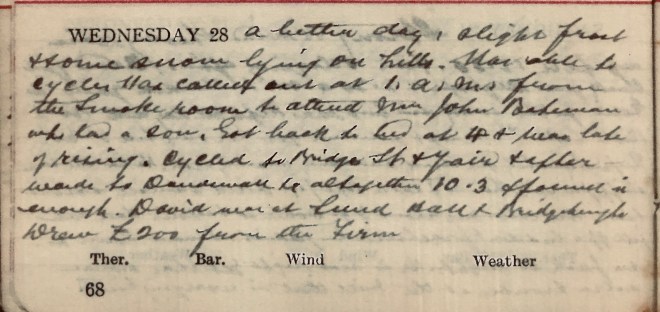 WEDNESDAY 28 a better day, slight frost
& some snow lying on hills. Was able to
cycle. Was called out at 1. a.m. from
the Smoke room to attend Mrs John Bateman
who had a son. Got back to bed at 4 & was late
of rising. Cycled to Bridge St & Fair & after
wards to altogether 10-3 & found it
enough. David was at Hall & Bridgehaugh
Drew £200 from the Firm
Ther. Bar. Wind Weather
68